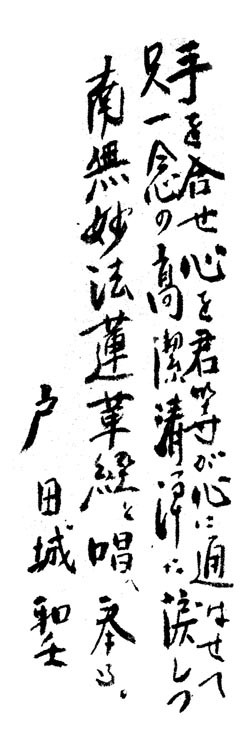 手を合せ心を君等が心に通はせて
只一念の高潔清浄に涙しつ
南無妙法蓮華経と唱へ奉る。
戸田城